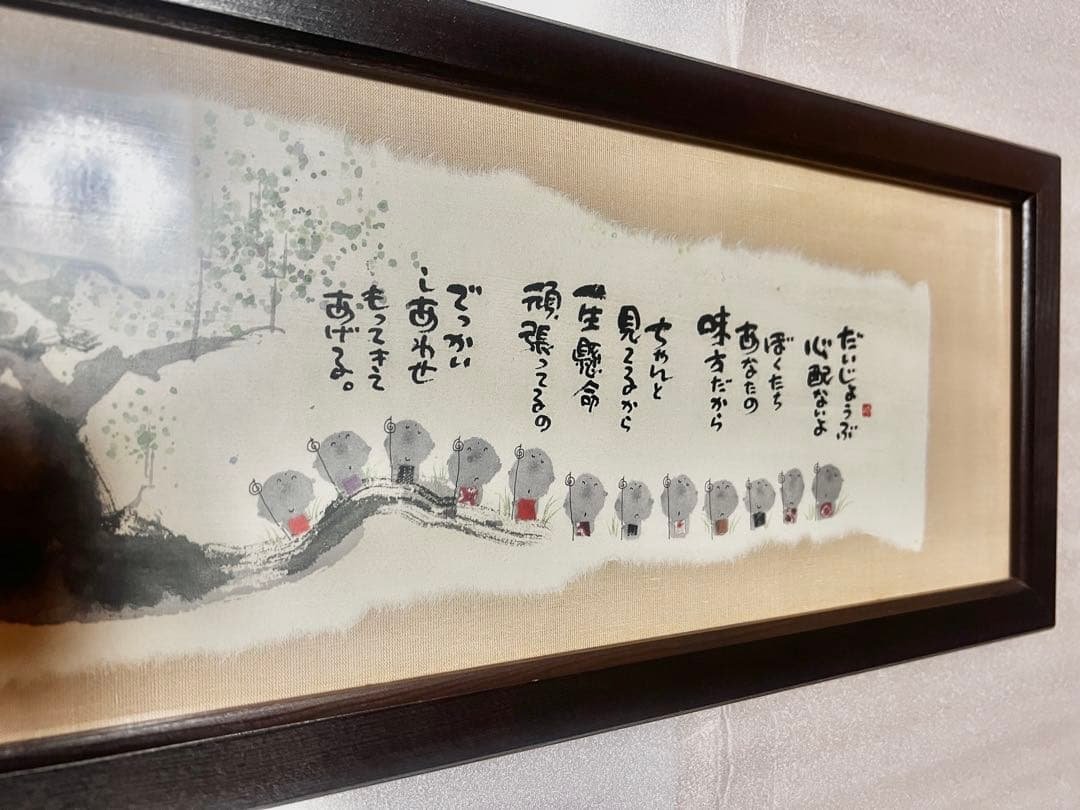 だいじょうぶ
心配ないよ
ぼくたち
あなたの
味方だから
ちゃんと
見てるから
一生懸命
頑張ってるの
でっかい
しあわせ
もってきて
あげる。